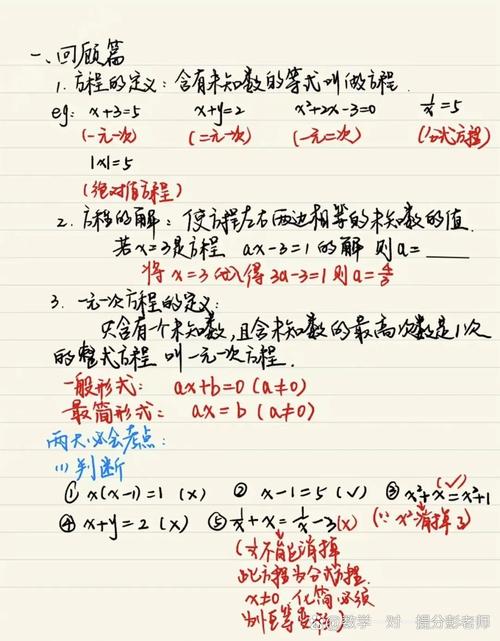 一、回顾篇
1. 方程的定义：含有未知数的等式叫做方程.
eg: x+3=5 x+y=2 x²+2x-3=0 1/x=5
(一元一次) (二元一次) (一元二次) (分式方程)
|x|=5
(绝对值方程)
2. 方程的解：使方程左右两边相等的未知数的值.
若x=3是方程 ax-3=1的解 则a=____
将x=3代入得3a-3=1则a=4/3
3. 一元一次方程的定义：
只含有一个未知数,且含未知数的最高次数是1次
的整式方程 叫一元一次方程.
一般形式： ax+b=0 (a≠0)
最简形式： ax=b (a≠0)
两大必会考点：
(1) 判断
① x(x-1)=1 (x) ② x-1=5 (√) ③ x²+x=x²+1 (√)
④ x+y=2 (x) ⑤ 1/x+x=1/x-3 (x) (∵x²消掉了)
(1/x不能消掉
此方程为分式方程.
x≠0. 化简必须
为恒等变形
数学一对一提分彭老师